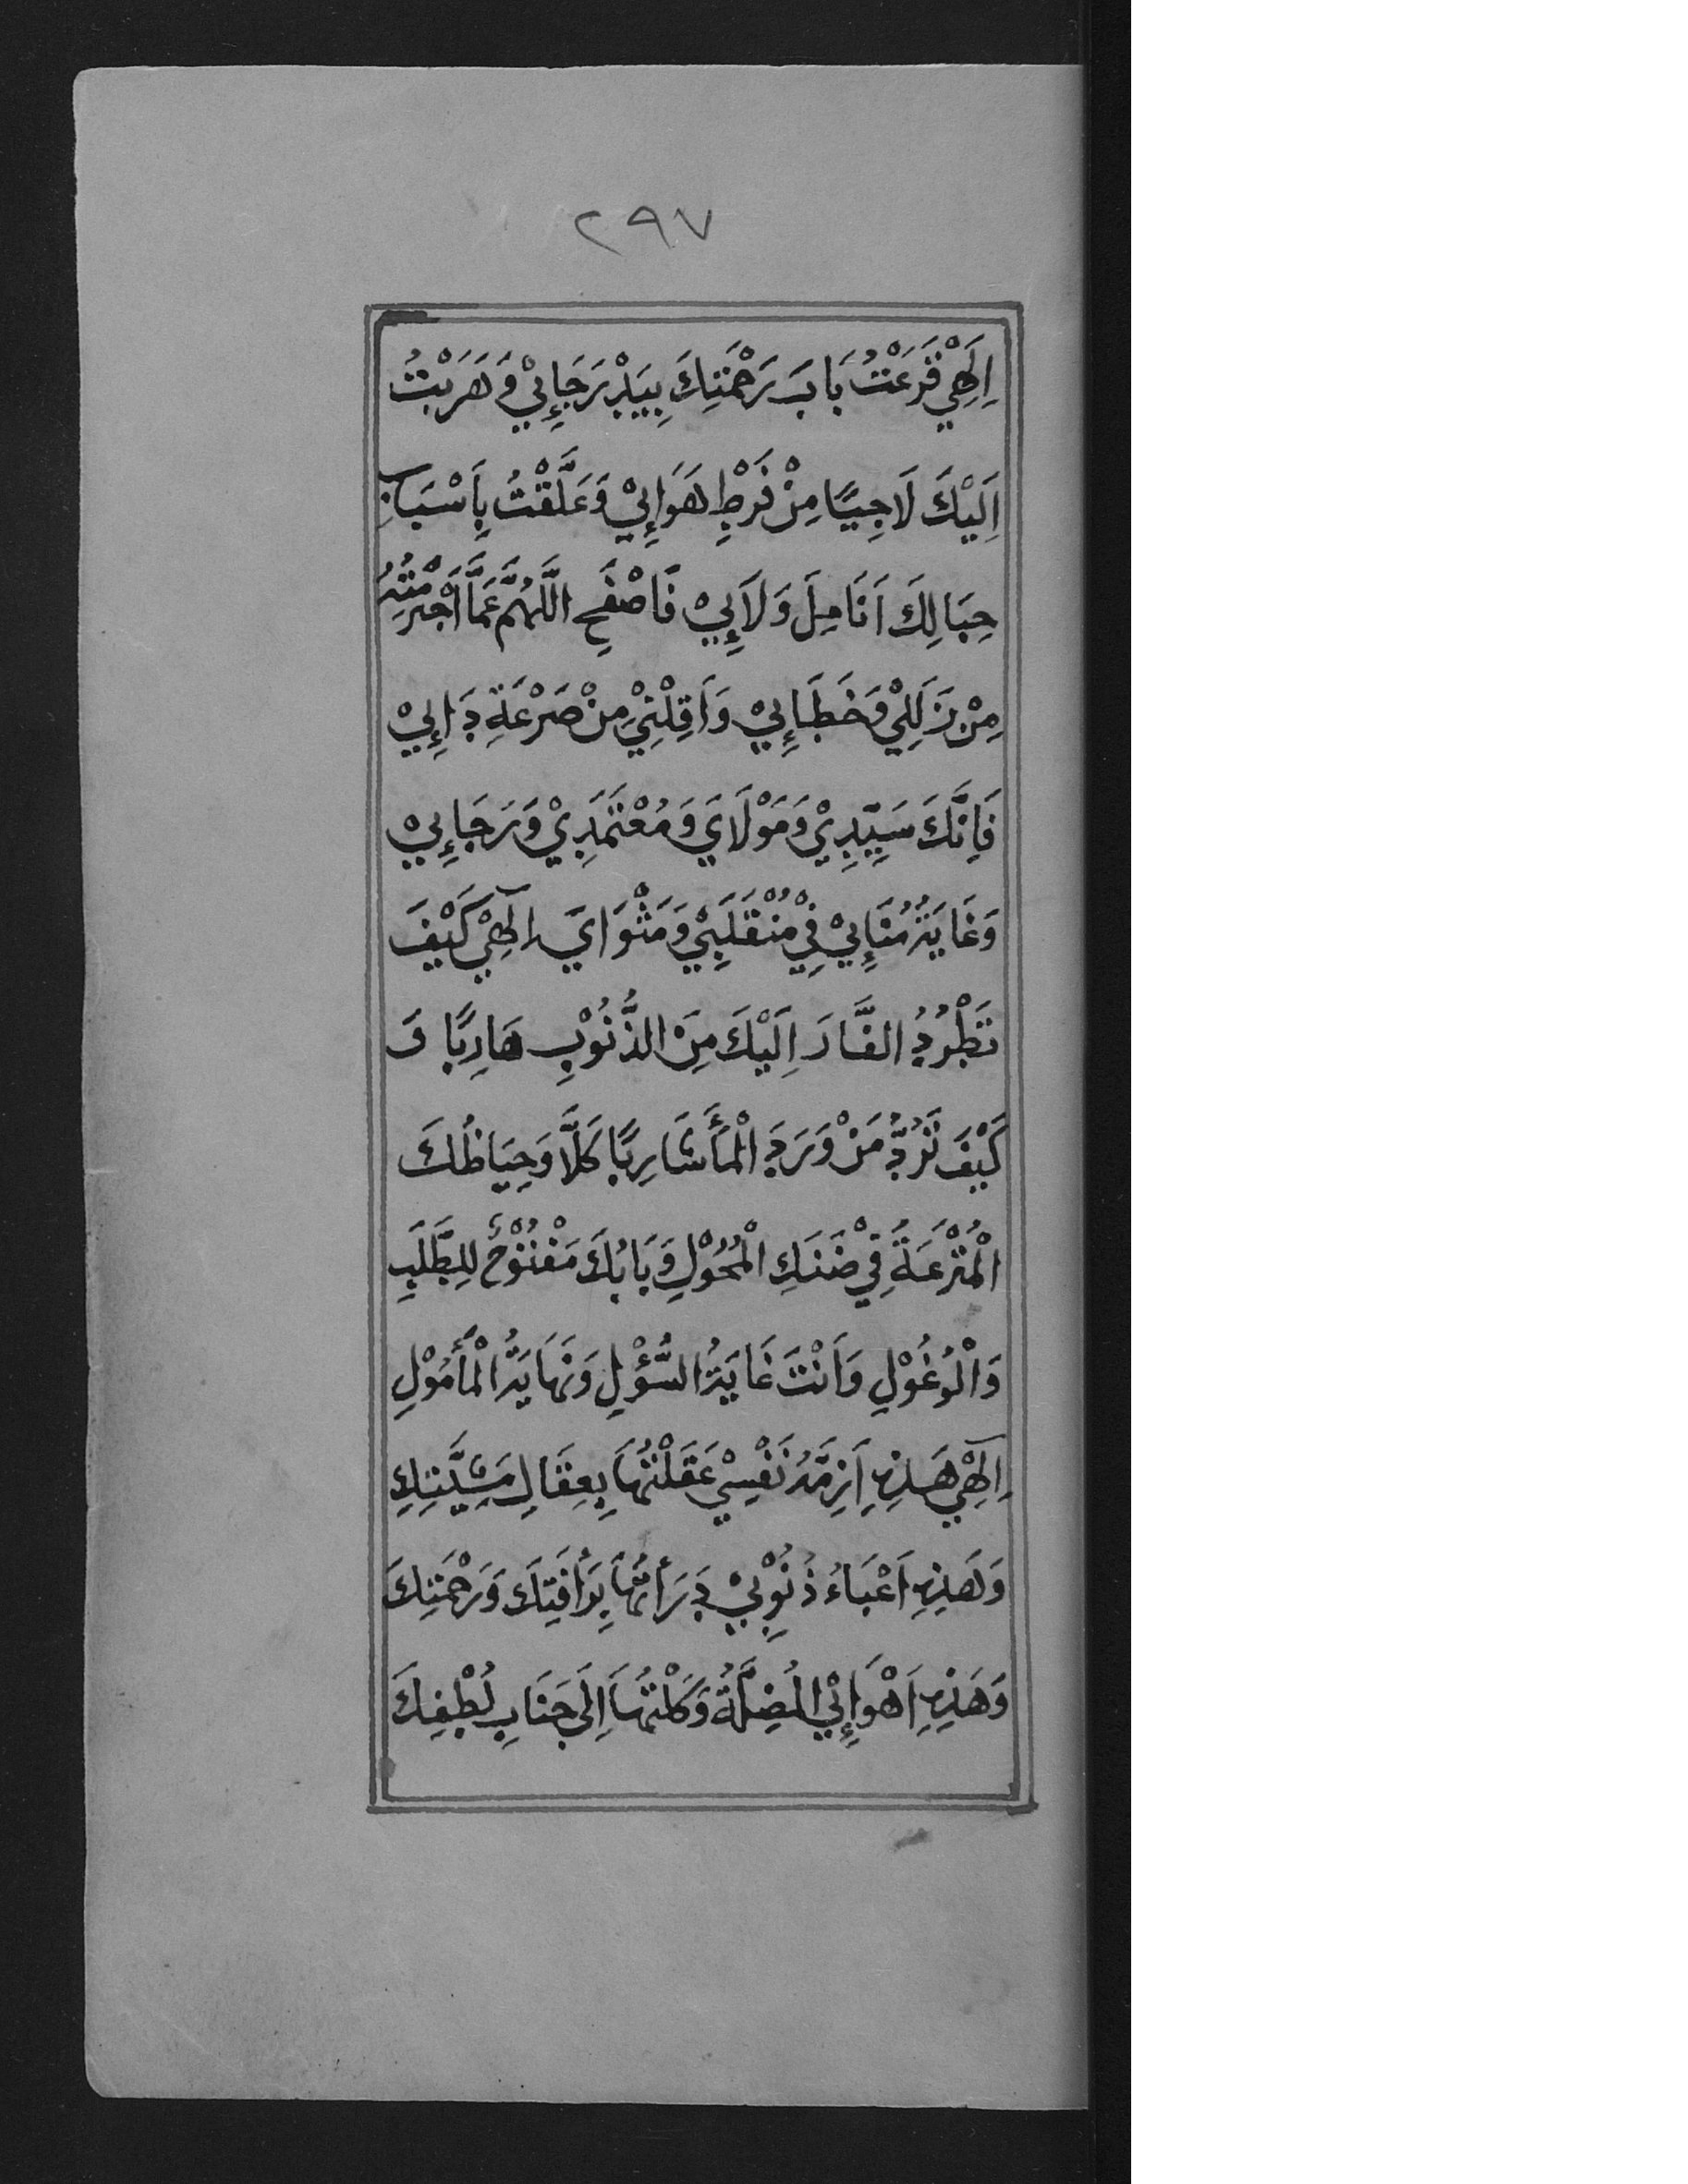 ٢٩٧
اِلَهِيْ قَرَعْتُ بَابَ رَحْمَتِكَ بِيَدِ رَجَإِيْ وَهَرَبْتُ
اِلَيْكَ لَاجِيًا مِنْ فَرْطِ هَوَإِيْ وَعَلَّقْتُ بِاَسْبَابِ
حِبَالِكَ اَنَامِلَ وَلَإِيْ فَاصْفَحِ اللَّهُمَّ عَمَّا اَجْرَمْتُهُ
مِنْ زَلَلِيْ وَخَطَإِيْ وَاَقِلْنِيْ مِنْ صَرْعَةِ دَإِيْ
فَاِنَّكَ سَيِّدِيْ وَمَوْلَايَ وَمُعْتَمَدِيْ وَرَجَإِيْ
وَغَايَةُ مُنَإِيْ فِيْ مُنْقَلَبِيْ وَمَثْوَايَ اِلٓهِيْ كَيْفَ
تَطْرُدُ الفَّارَ اِلَيْكَ مِنَ الذُّنُوْبِ هَارِبًا وَ
كَيْفَ تَرُدُّ مَنْ وَرَدَ الْمَأَ شَارِبًا كَلَّا وَحِيَاظُكَ
الْمُتْرَعَةُ فِيْ ضَنَكِ الْمُحُوْلِ وَبَابُكَ مَفْتُوْحٌ لِلطَّلَبِ
وَالْوُغُوْلِ وَاَنْتَ غَايَةُ السُّؤْلِ وَنِهَايَةُ الْمَأْمُوْلِ
اِلٓهِيْ هَذِهِ اَزِمَّةُ نَفْسِيْ عَقَلْتُهَا بِعِقَالِ مَشِيَّتِكَ
وَهَذِهِ اَعْبَاءُ ذُنُوْبِيْ دَرَأْتُهَا بِرَأْفَتِكَ وَرَحْمَتِكَ
وَهَذِهِ اَهْوَإِيْ الْمُضِلَّةُ وَكَلْتُهَا اِلَى جَنَابِ لُطْفِكَ